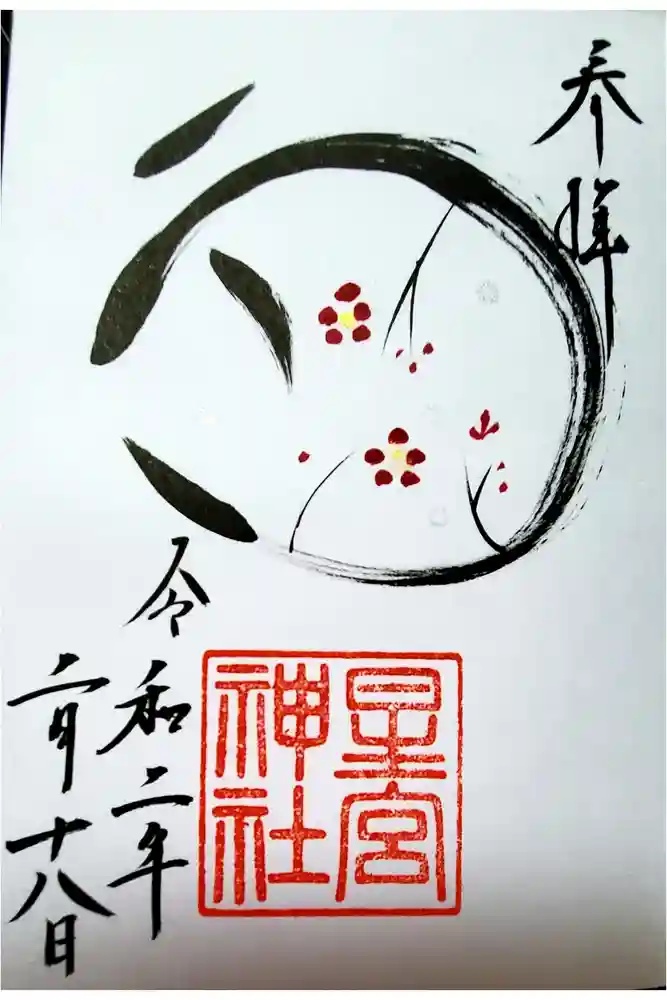 奉拝
星宮
神社
令和二年
二月十八日